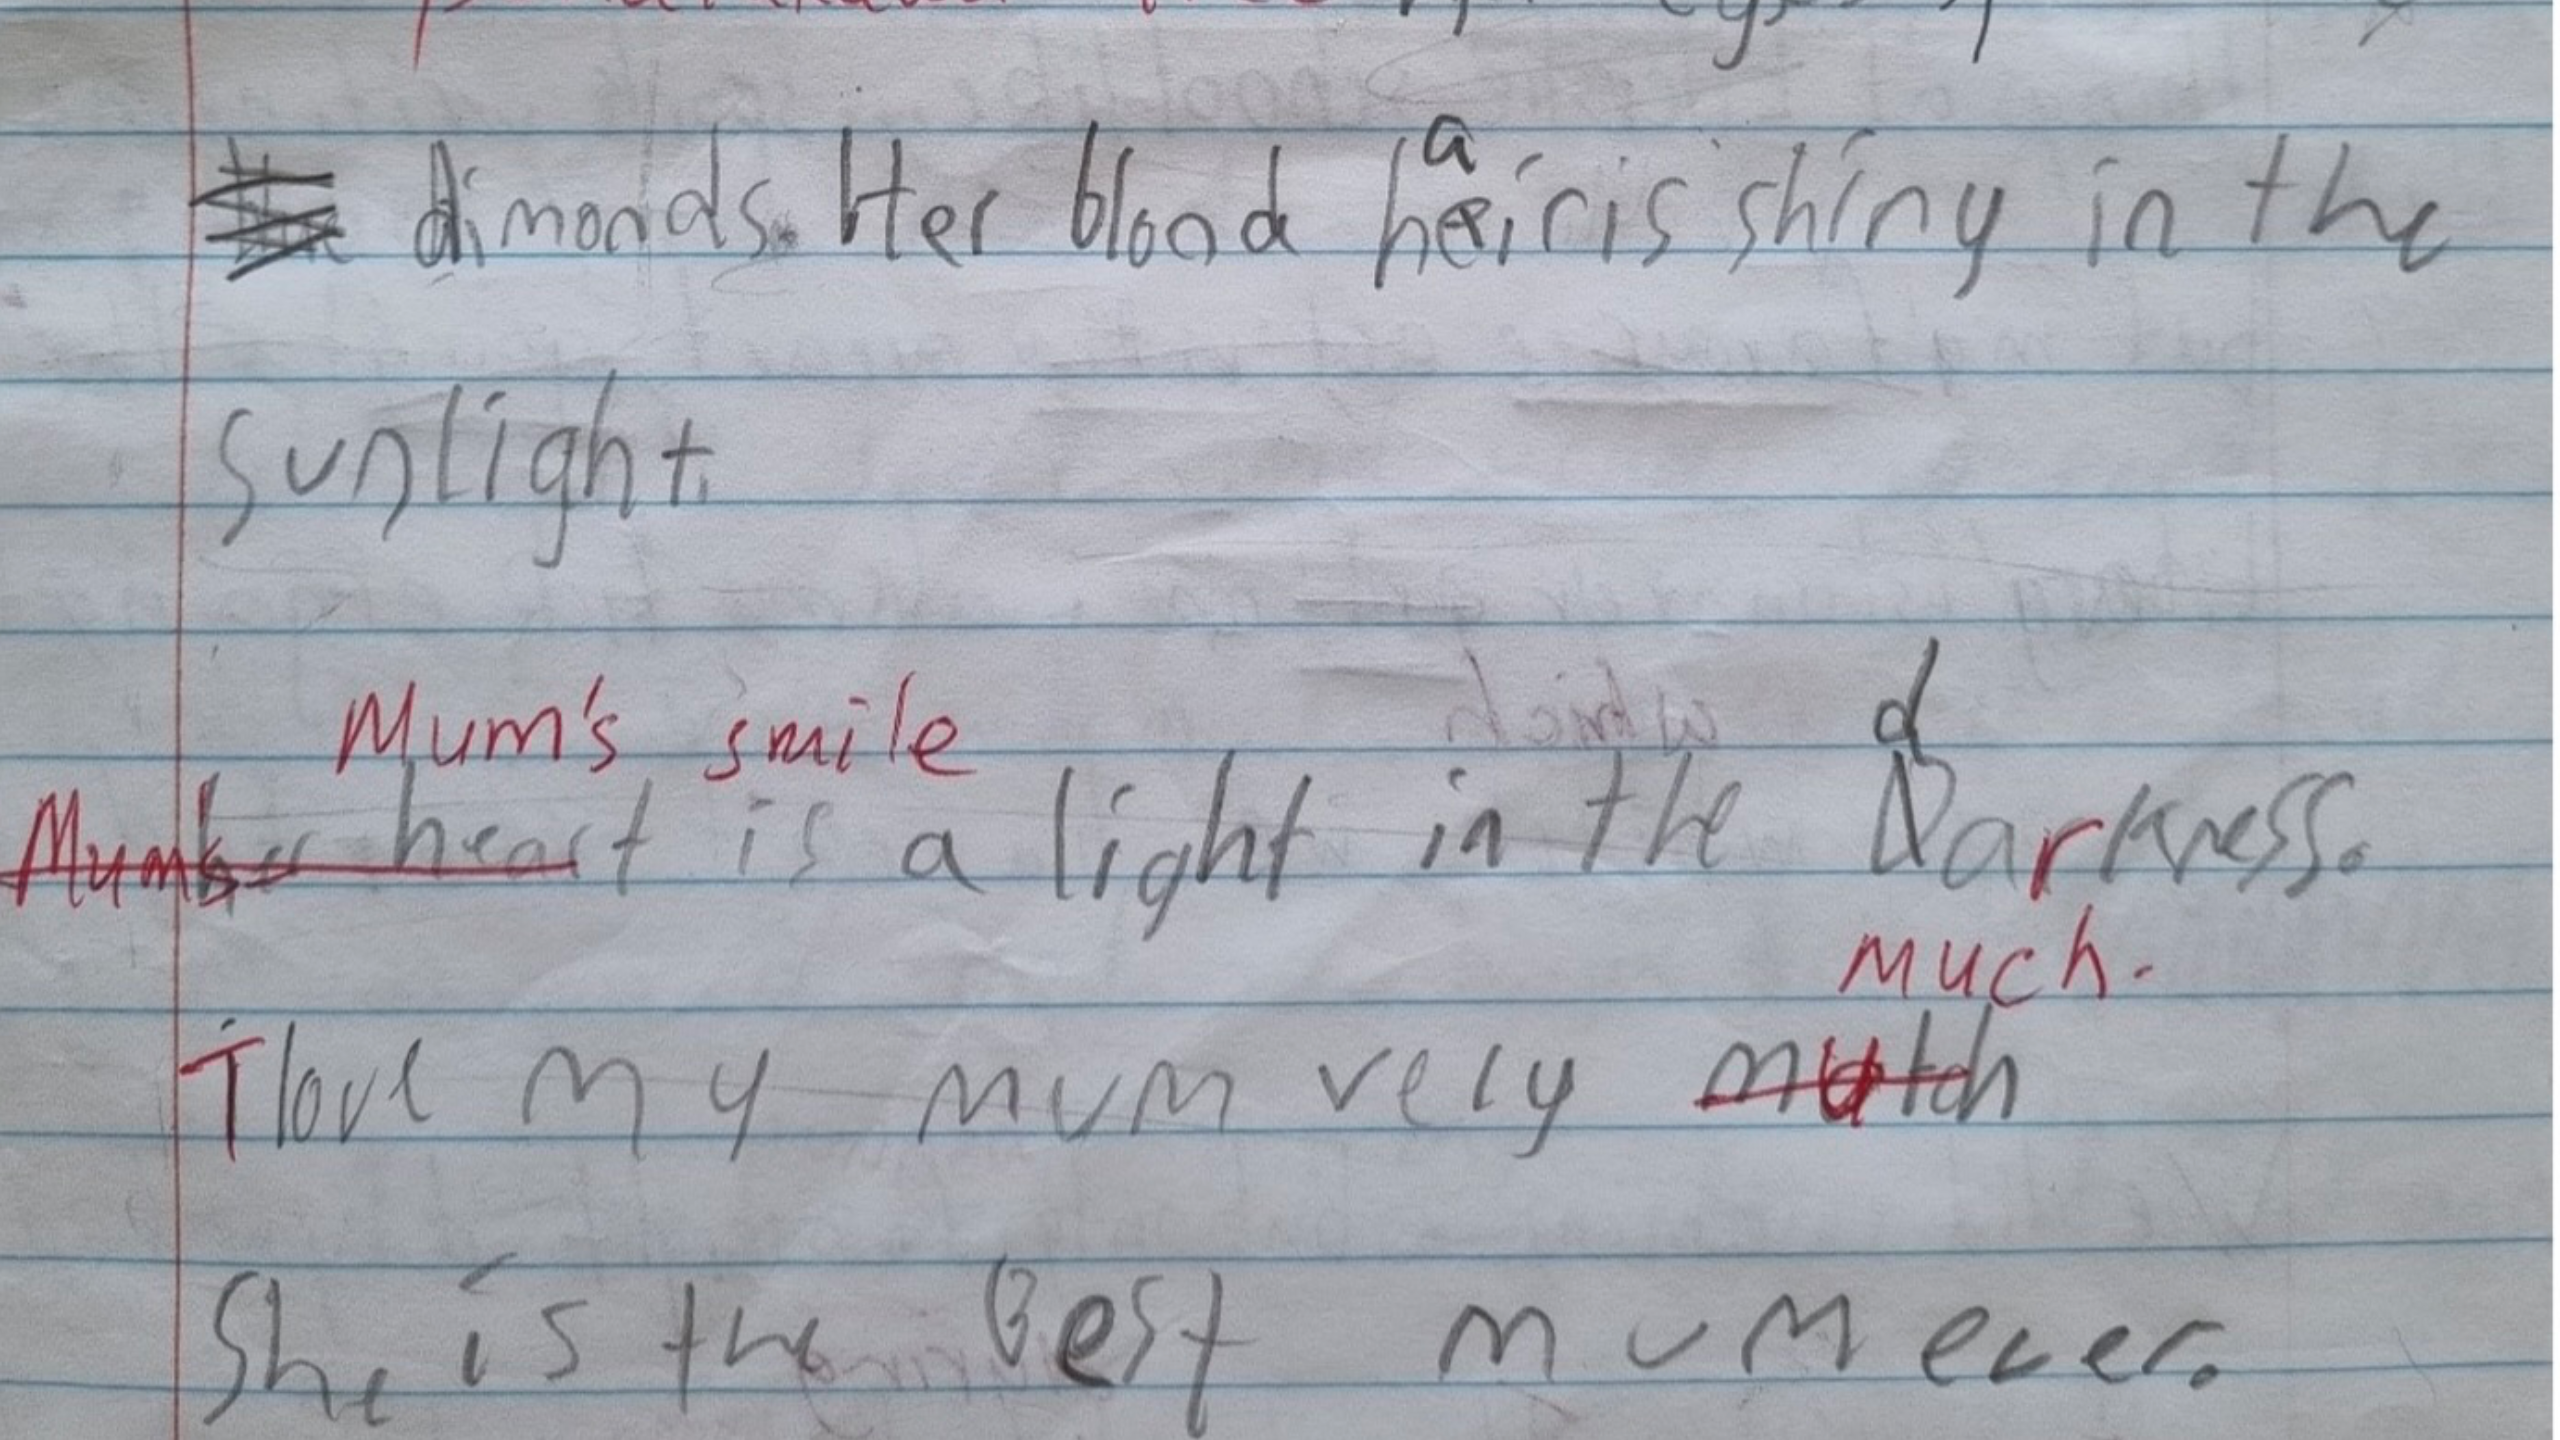 dimonds. Her blond hair is shiny in the
sunlight.
Mum's smile
d
Mum's her heart is a light in the Darkness.
much.
I love my mum very mutch
She is the Best mum ever.